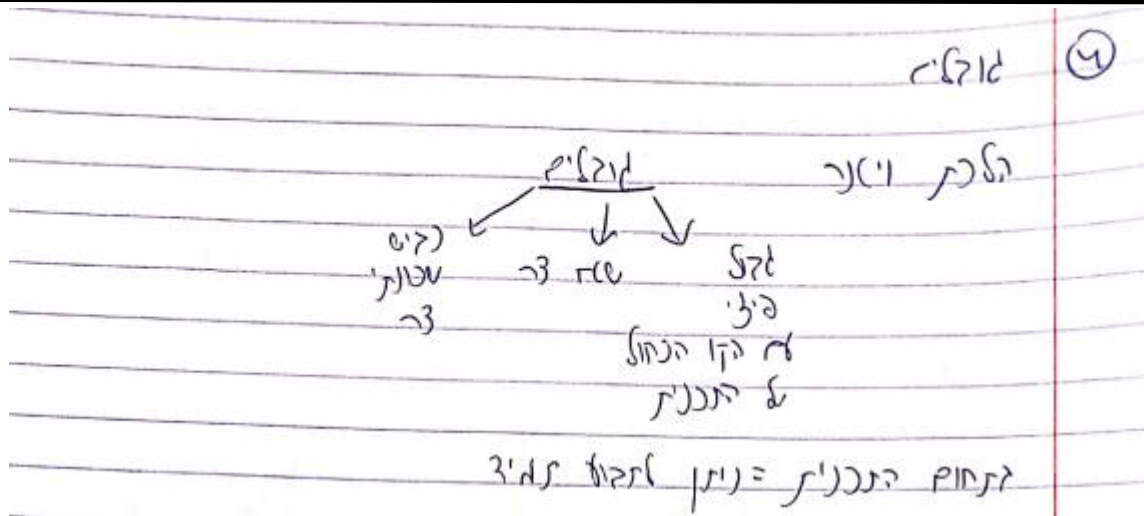 ④ גובלים
הלכת ויטנר
גובלים
גבול פיזי עם הקו הכחול של התכנית
שטח צר
כביש שכונתי צר
בתחום התכנית = ניתן לתבוע תמיד